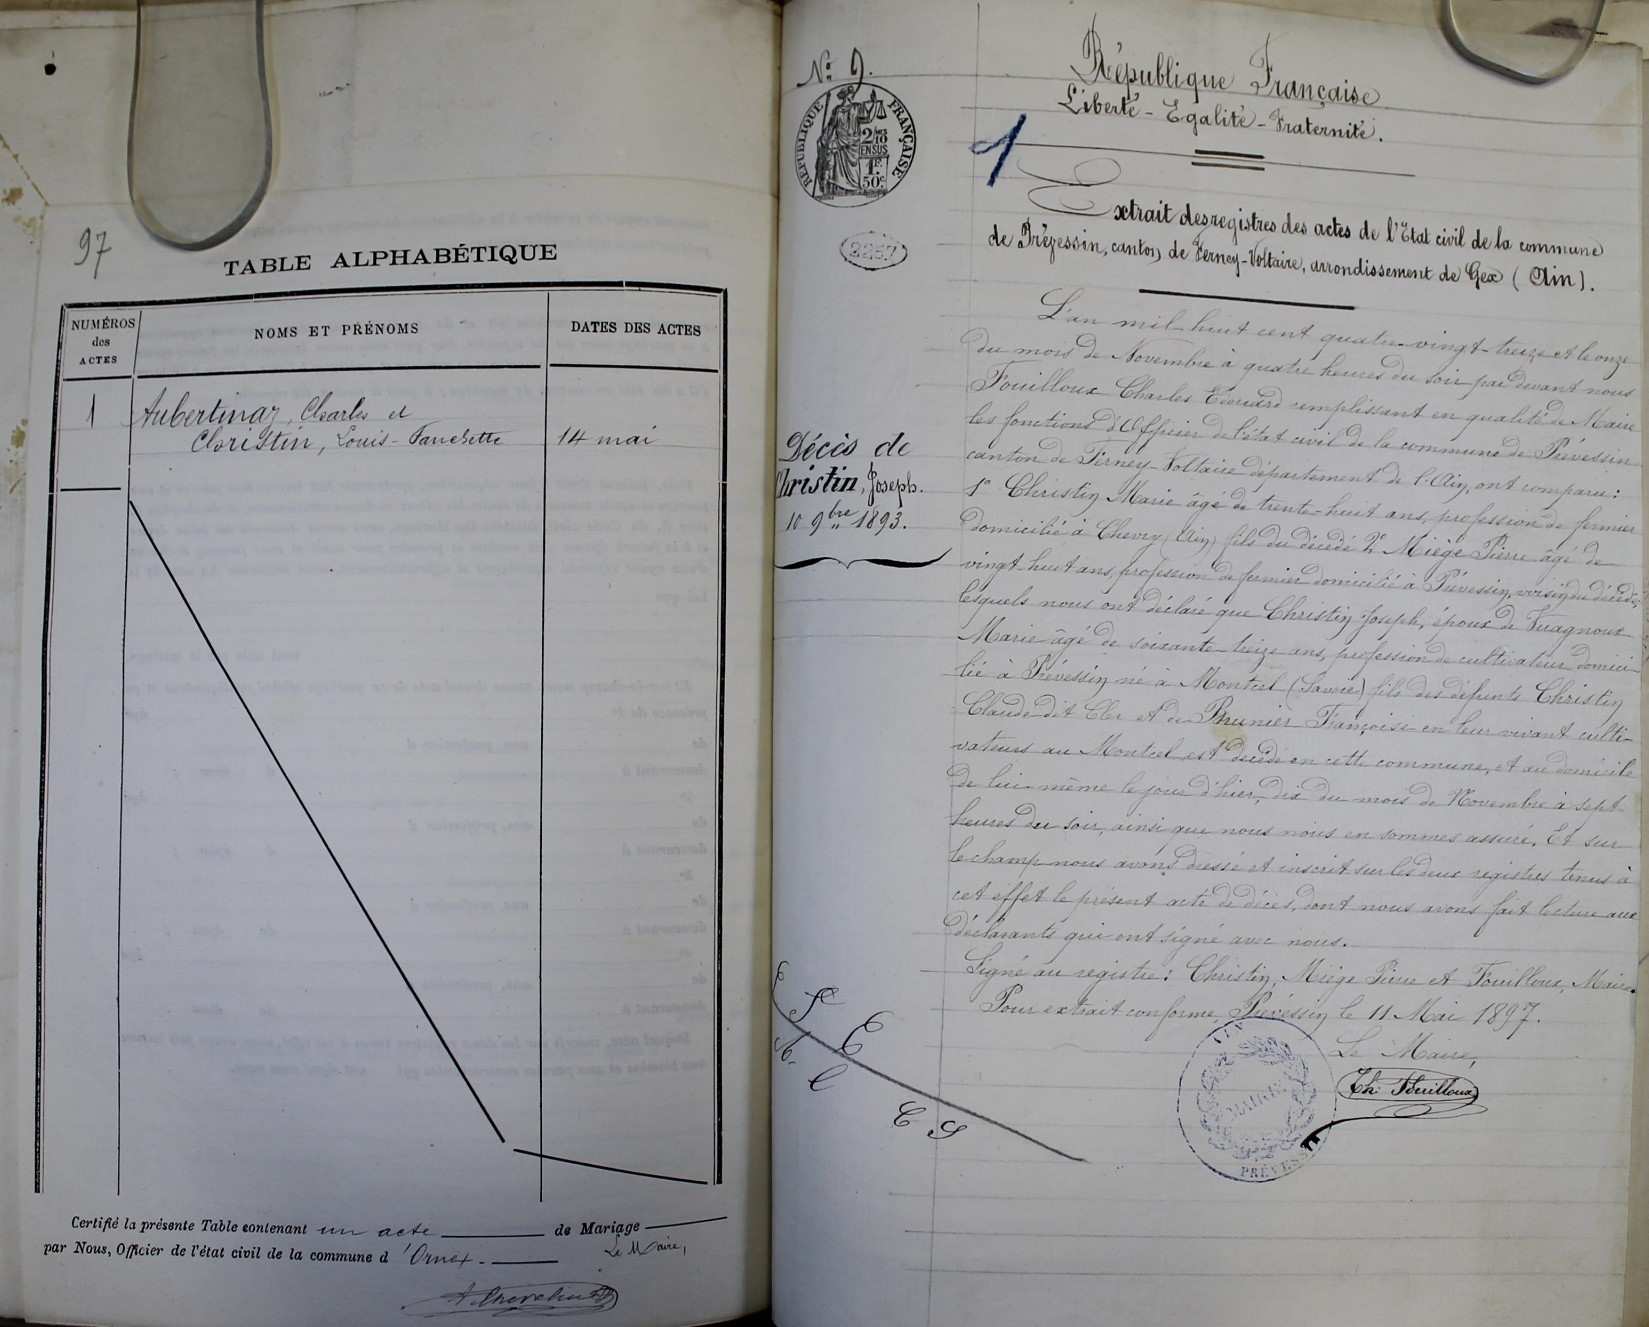 97
TABLE ALPHABÉTIQUE
NUMÉROS
des
ACTES
NOMS ET PRÉNOMS
DATES DES ACTES
1 Aubertinaz, Charles et
Christin, Louis-Fanchette 14 mai
Certifié la présente Table contenant un acte de Mariage
par Nous, Officier de l'état civil de la commune d'Ornex.
Le Maire,
No: 9.
RÉPUBLIQUE FRANÇAISE
2/10
EN SUS
1F
50c
2257
Décès de
Christin, Joseph.
10 9bre 1893.
République Française
Liberté - Egalité - Fraternité.
1
Extrait des registres des actes de l'Etat civil de la commune
de Prévessin, canton de Ferney-Voltaire, arrondissement de Gex (Ain).
L'an mil huit cent quatre-vingt-treize et le onze
du mois de Novembre à quatre heures du soir par devant nous
Fouilloux Charles Edouard remplissant en qualité de Maire
les fonctions d'Officier de l'état civil de la commune de Prévessin
canton de Ferney-Voltaire département de l'Ain, ont comparu:
1° Christin Marie âgé de trente-huit ans, profession de fermier
domicilié à Chevry (Ain) fils du décédé 2° Miège Pierre âgé de
vingt-huit ans, profession de fermier domicilié à Prévessin, voisin du décédé,
lesquels nous ont déclaré que Christin Joseph, époux de Vuagnoux
Marie âgé de soixante-treize ans, profession de cultivateur domici-
lié à Prévessin né à Montcel (Savoie) fils des défunts Christin
Claude dit Cler et de Prunier Françoise en leur vivant culti-
vateurs au Montcel est décédé en cette commune, et au domicile
de lui-même le jour d'hier, dix du mois de Novembre à sept
heures du soir, ainsi que nous nous en sommes assuré. Et sur
le champ nous avons dressé et inscrit sur les deux registres tenus à
cet effet le présent acte de décès, dont nous avons fait lecture aux
déclarants qui ont signé avec nous.
Signé au registre: Christin, Miège Pierre et Fouilloux, Maire.
Pour extrait conforme, Prévessin le 11 Mai 1897.
Le Maire,
Ch. Fouilloux
MAIRIE
PRÉVESSIN
AIN